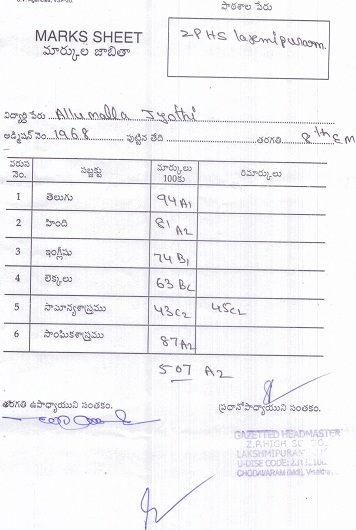 పాఠశాల పేరు
MARKS SHEET
మార్కుల జాబితా
ZPHS laxmipuram
విద్యార్థి పేరు Allumalla Jyothi
అడ్మిషన్ నెం. 1968 పుట్టిన తేది తరగతి 8th EM
వరుస నెం. సబ్జక్టు మార్కులు 100కు రిమార్కులు
1 తెలుగు 94 A1
2 హింది 81 A2
3 ఇంగ్లీషు 74 B1
4 లెక్కలు 63 B2
5 సామాన్యశాస్త్రము 43 C2 45 C2
6 సాంఘికశాస్త్రము 87 A2
507 A2
తరగతి ఉపాధ్యాయుని సంతకం. ప్రధానోపాధ్యాయుని సంతకం.
GAZETTED HEADMASTER
Z.P.HIGH
LAKSHMIPURAM
U-DISE CODE:
CHODAVARAM (Md),